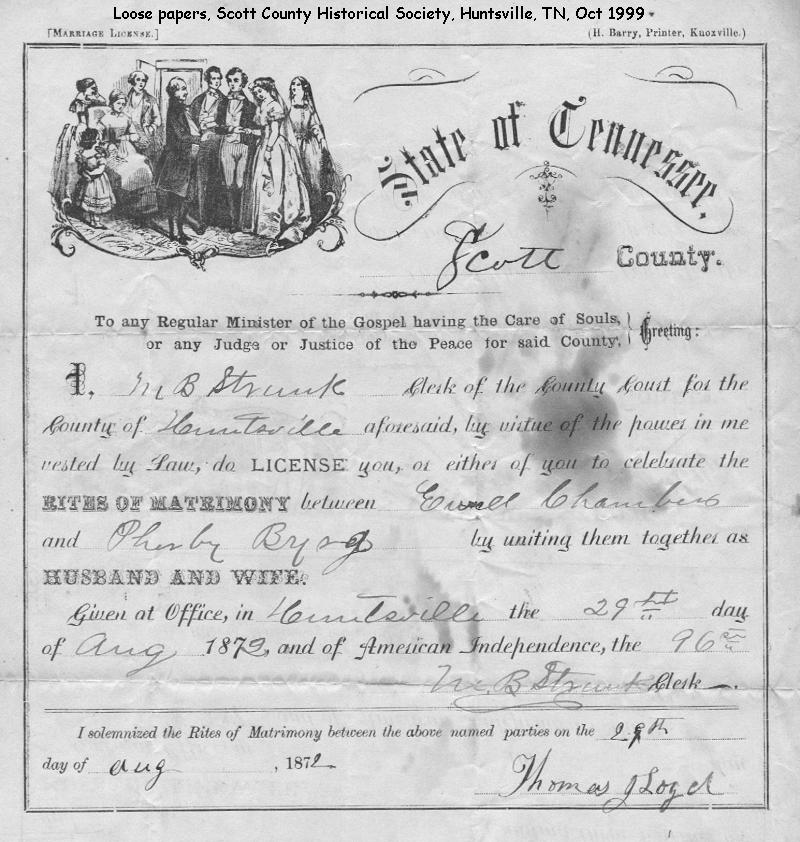 Loose papers, Scott County Historical Society, Huntsville, TN, Oct 1999
[Marriage License.]
(H. Barry, Printer, Knoxville.)
State of Tennessee,
Scott County.
To any Regular Minister of the Gospel having the Care of Souls,
or any Judge or Justice of the Peace for said County,
Greeting:
I, M B Strunk Clerk of the County Court for the
County of Huntsville aforesaid, by virtue of the power in me
vested by Law, do LICENSE you, or either of you to celebrate the
RITES OF MATRIMONY between Chambers
and by uniting them together as
HUSBAND AND WIFE.
Given at Office, in Huntsville the 29 day
of Aug 1872, and of American Independence, the 96
M. B Strunk Clerk
I solemnized the Rites of Matrimony between the above named parties on the 29th
day of aug, 1872
Thomas J